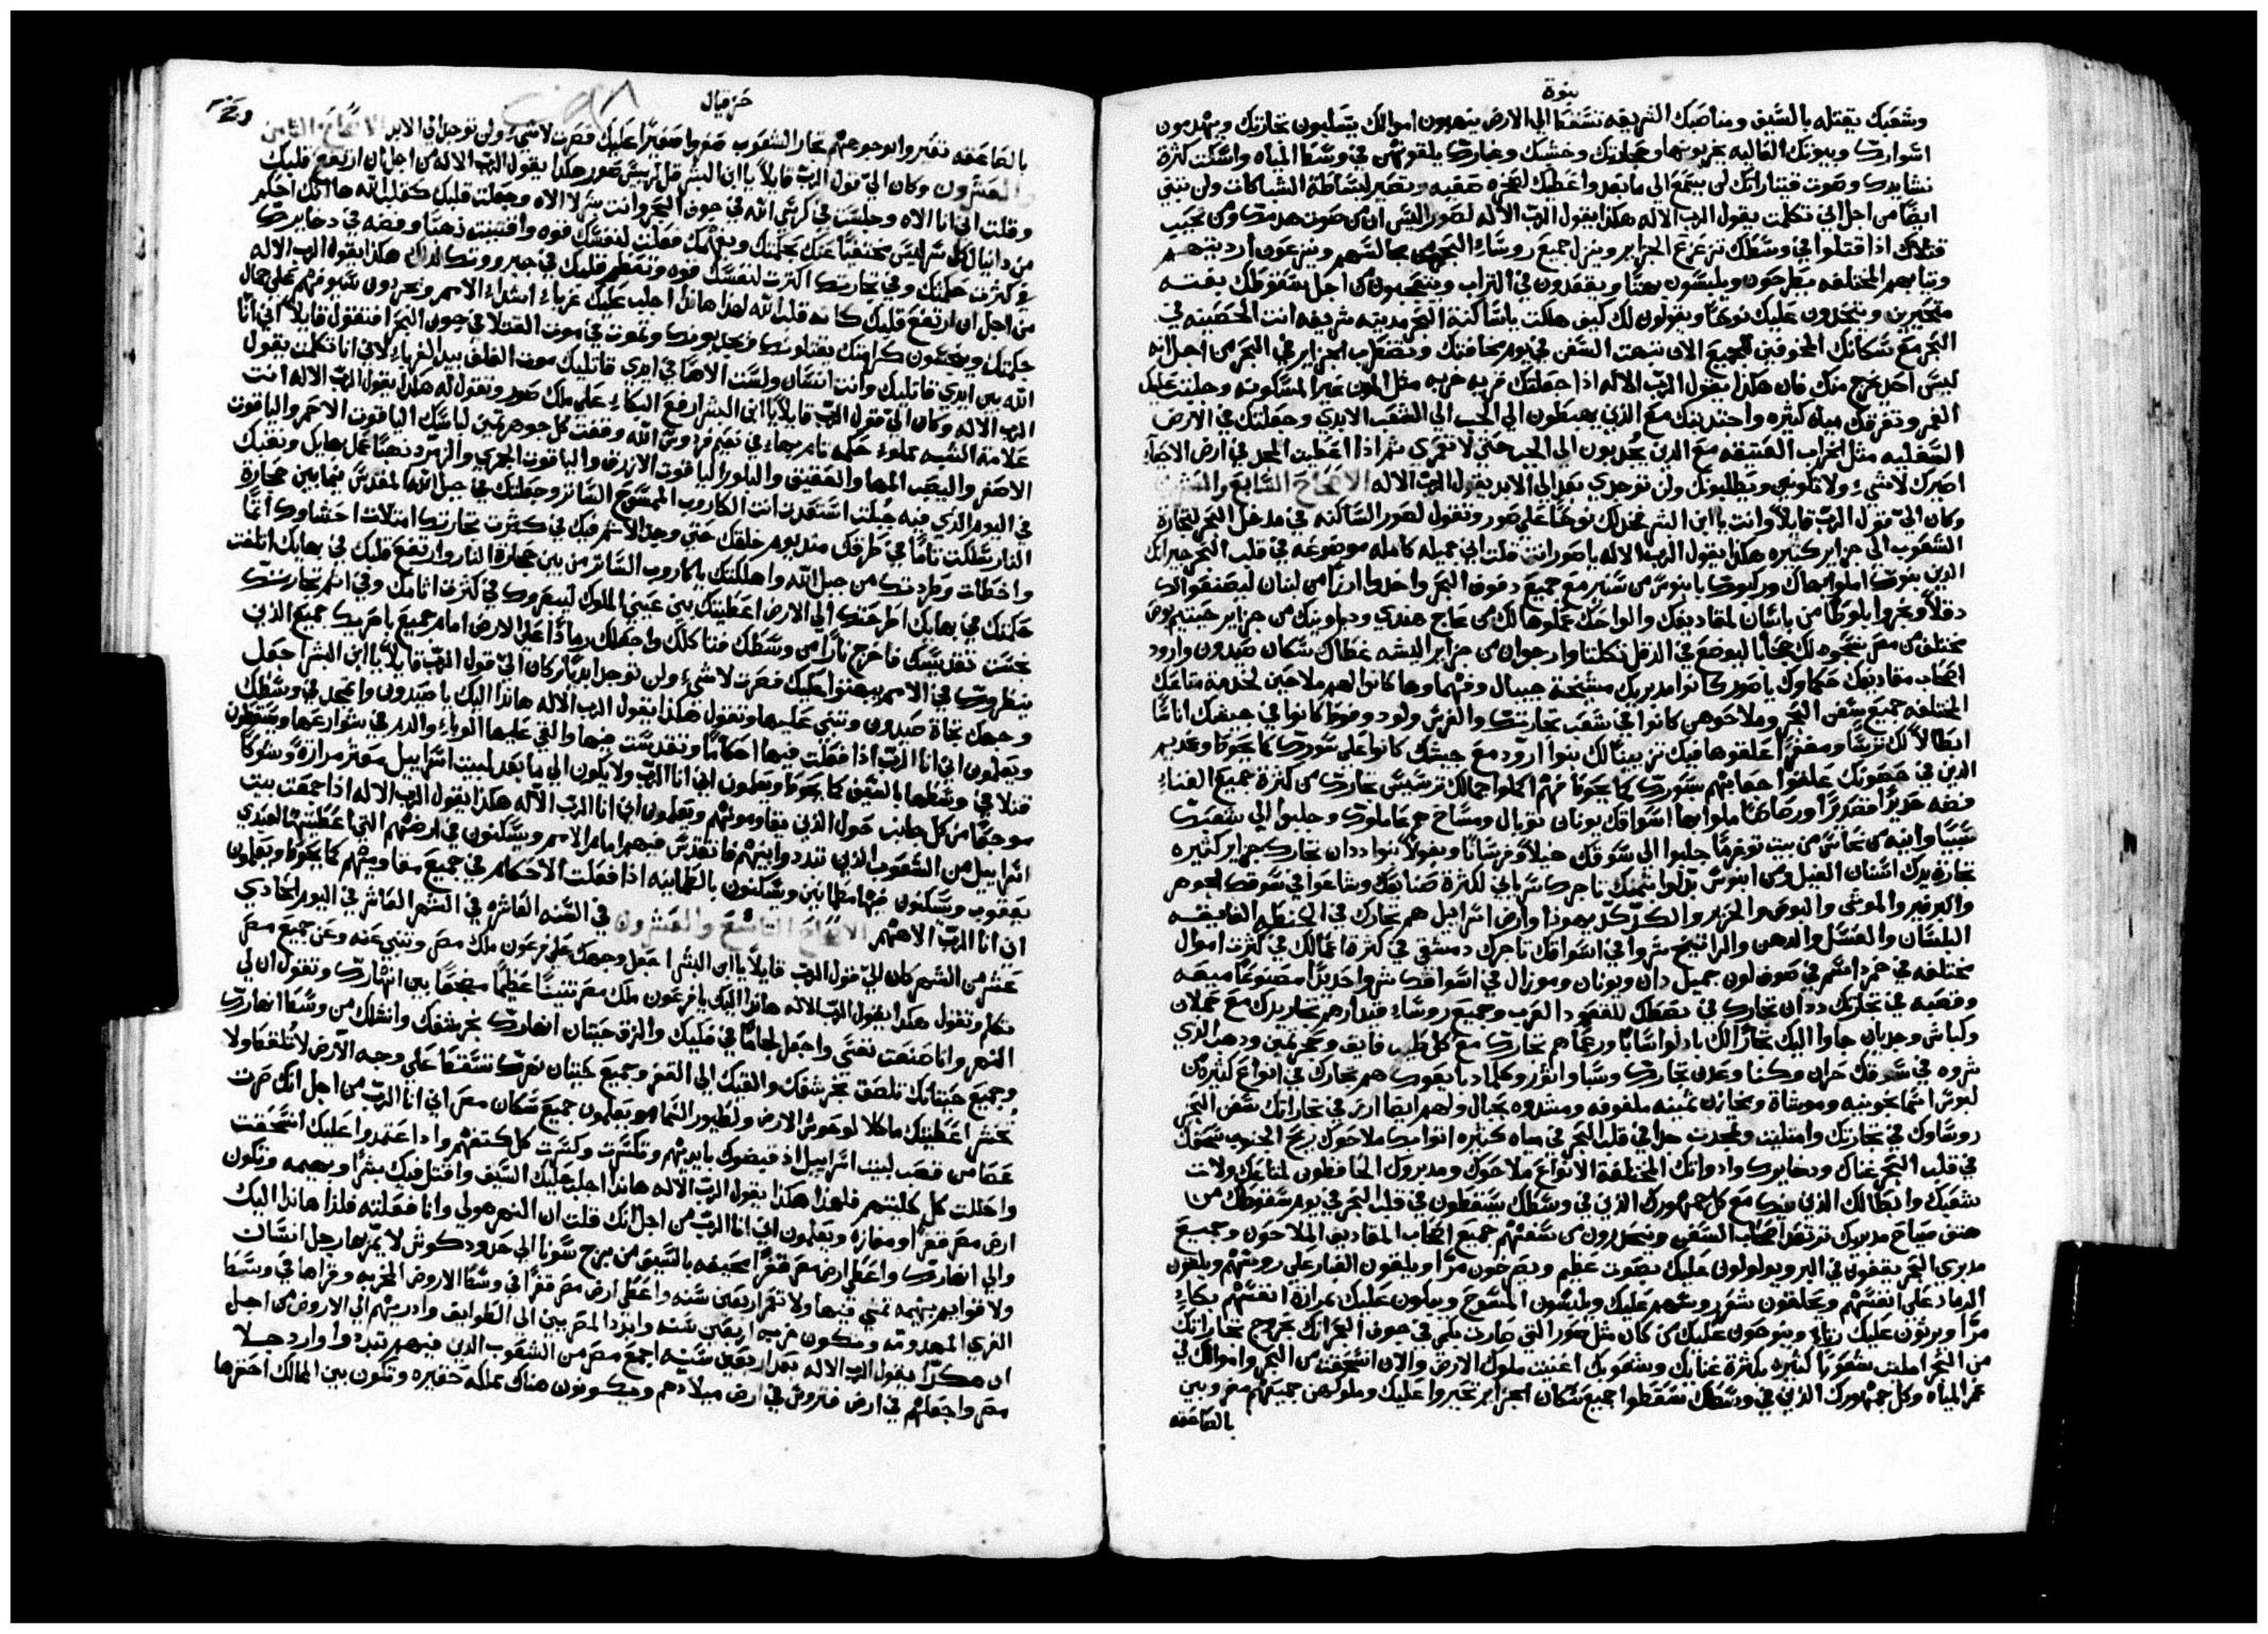 نبوة
وشعبك يقتله بالسيف ومناصبك الشريفه تسقط الي الارض ينهبون اموالك يسلبون تجارتك ويهدمون
اسوارك وبيوتك العاليه يخربونها وحجارتك وخشبك وغبارك يلقونهم في وسط المياه واسكت كثرة
نشايدك وصوت قيثاراتك لن يسمع الي ما بعد واعطيك لصخره صقيه وتصير لبساطة الشباكات ولن تبني
ايضا من اجل اني تكلمت يقول الرب الاله هكذا يقول الرب الاله لصور اليس ان من صوت هدمك ومن نحيب
قتلاك اذا قتلوا في وسطك تتزعزع الجزاير وينزل جميع روساء البحر من مجالسهم وينزعون ارديتهم
وثيابهم المختلفه يطرحون ويلبسون بهتا ويقعدون في التراب ويتعجبون من اجل سقوطك بغته
متحيرين ويتخذون عليك نوحا ويقولون لك كيف هلكت يا ساكنة البحر مدينه شريفه انت الحصينه في
البحر مع سكانك المخوفين لجميع الان تبهت السفن في يوم مخافتك وتضطرب الجزاير في البحر من اجل انه
ليس احد يخرج منك فان هكذا يقول الرب الاله اذا جعلتك قريه خربه مثل المدن غير المسكونه وجلبت عليك
الغمر وتغرقك مياه كثيره واحتدرتك مع الذين يهبطون الي الجب الي الشعب الابدي وجعلتك في الارض
السفليه مثل الخراب العتيقه مع الذين يحدبون الي الجب حتي لا تعمري ثم اذا اعطيت المجد في ارض الاحيا
اصيرك لاشي ولا تكوني وتطلبونك ولن توجدي بعد الي الابد يقول الرب الاله الاصحاح السابع والعشرون
وكان الي قول الرب قايلا وانت يا ابن البشر اتخذ لك نوحا علي صور وتقول لصور الساكنه في مدخل البحر لتجارة
الشعوب الي جزاير كثيره هكذا يقول الرب الاله يا صور انت قلت اني جميله كامله موضوعه في قلب البحر جيرانك
الذين بنوك املوا بهاك وركبوك بابنوس من سنير مع جميع دفوف البحر واخذوا ارزا من لبنان ليصنعوا لك
دقلا ونجروا بلوطا من باسان لمقاديفك والواحك عملوها لك من عاج هندي ودواوينك من جزاير
مختلف من مصر تتخذه لك حجابا ليوضع في الدقل اسمانجونيا وارجوان من جزاير اليشه غطاك سكان صيدون وارود
اصحاب مقاديفك حكماوك يا صور كانوا مدبريك مشيخة جبيال وفهماوها كانوا لهم ملاحين لخدمة متاعك
المختلفه جميع سفن البحر وملاحوهن كانوا في شعب تجارتك والفرس ولود وفوط كانوا في جيشك اناسا
ابطالا لك ترسا ومغفرا علقوها فيك تزيينا لك بنوا ارود مع جيشك كانوا علي سورك كما يحوط
الذين في حصونك علقوا جعابهم سورك كما يحوط فهم اكملوا جمالك ترسيس تجارك من كثرة جميع الغناء
فضه حديدا قصديرا ورصاصا ملوا بها اسواقك يونان توبال ومساخ هم عاملوك وجلبوا الي شعبك
سبيا وانيه من نحاس من بيت توغرما جلبوا الي سوقك خيلا وفرسانا وبغولا بنوا ددان تجارك جزاير كثيره
تجارة يدك اسنان الفيل ومن ابنوس بدلوا بثمنك تاجرك سرياني لكثرة صنايعك وشاعوا في سوقك الجوهر
والبرفير والموشي والبوص والحرير والكركد يهوذا وارض اسراييل هم تجارك في الحنطه الفايقه
البلسان والعسل والدهن والراتينج شروا في اسواقك تاجرك دمشق في كثرة اعمالك في كثرت اموال
مختلفه في خمر دسم في صوف لون جميل دان ويونان وموزال في اسواقك شروا حديدا مصنوعا ميعه
وقصبه في تجارتك ددان تجارك في بسطك للقعود العرب وجميع روساء قيدار هم تجار يدك مع حملان
وكباش وجديان جاوا اليك تجارا لك بادلوا سابا ورعما هم تجارك مع كل طيب فايق وحجر ثمين وذهب الذي
شروه في سوقك حران وكنا وعدن تجارك وسبا واثور وكلماد بايعوك هم تجارك في انواع كثيره من
لبوس اسمانجونيه وموشاة وبخازن ثمينه ملفوفه ومشدوه بحبال ولهم ايضا ارز في تجاراتك سفن البحر
روساوك في تجارتك وامتليت وتمجدت جدا في قلب البحر في مياه كثيره اتوا بك ملاحوك ريح الجنوب سحقك
في قلب البحر غناك وذخايرك وادواتك المختلفة الانواع ملاحوك ومدبروك الحافظون لمتاعك ولات
شعبك وابطالك الذين فيك مع كل جمهورك الذين في وسطك يسقطون في قلب البحر في يوم سقوطك من
هتف صياح مدبريك ترتعد اصحاب السفن وينحدرون من سفنهم جميع اصحاب المقاديف الملاحون وجميع
مدبري البحر يقفون في البر ويولولون عليك بصوت عظيم ويصرخون مرا ويلقون الغبار علي روسهم ويلقون
الرماد علي انفسهم ويحلقون شعور روسهم عليك ويلبسون المسوح ويبكون عليك بمرارة انفسهم بكاء
مرا ويرثون عليك رثاء وينوحون عليك من كان مثل صور التي صارت بكم في جوف البحر انك بخروج تجاراتك
من البحر املت شعوبا كثيره بكثرة غنايك وشعوبك اغنيت ملوك الارض والان انسحقت من البحر واموالك في
غمر المياه وكل جمهورك الذين في وسطك سقطوا جميع سكان الجزاير تحيروا عليك وملوكهن جميعهم مضروبين
بالصاعقه
حزقيال
بالصاعقه تغيروا بوجوههم تجار الشعوب صفروا صفيرا عليك فصرت لاشي ولن توجد الي الابد الاصحاح الثامن
والعشرون وكان الي قول الرب قايلا يا ابن البشر قل لرييس صور هكذا يقول الرب الاله من اجل ان ارتفع قلبك
وقلت اني انا الاه وجلست في كرسي الله في جوف البحر وانت بشر لا الاه وجعلت قلبك كقلب الله ها انك احكم
من دانيال كل سر ليس مختفيا عنك بحكمتك وبفهمك فعلت لنفسك قوه واقتنيت ذهبا وفضه في دخايرك
في كثرت حكمتك وفي تجارتك اكثرت لنفسك قوه وتعظم قلبك في جبروتك لذلك هكذا يقول الرب الاله
من اجل ان ارتفع قلبك كانه قلب الله لهذا هانذا اجلب عليك غرباء اشداء الامم ويجردون سيوفهم علي جمال
حكمتك وينجسون كرامتك يقتلونك وتموت في موت القتلا في جوف البحر افتقول قايلا اني انا
الله بين ايدي قاتليك وانت انسان ولست الاها في ايدي قاتليك موت الغلف بيد الغرباء لاني انا تكلمت يقول
الرب الاله وكان الي قول الرب قايلا يا ابن البشر ارفع البكاء علي ملك صور وتقول له هكذا يقول الرب الاله انت
علامة الشبه مملوء حكمه تام ببهاء في نعيم فردوس الله وقفت كل جوهر ثمين لباسك الياقوت الاحمر والياقوت
الاصفر واليصب المها والعقيق والبلور الياقوت الازرق والياقوت الجمري والزمرد ذهبا عمل بهايك وثقبك
في اليوم الذي فيه جبلت استعدت انت الكاروب الممسوح الساتر وجعلتك في جبل الله المقدس فيما بين حجارة
النار سلكت تاما في طرقك منذ يوم خلقك حتي وجد الاثم فيك في كثرت تجارتك امتلات احشاوك اثما
واخطات وطردتك من جبل الله واهلكتك يا كاروب الساتر من بين حجارة النار وارتفع قلبك في بهايك اتلفت
حكمتك في بهايك اطرحتك الي الارض اعطيتك بين عيني الملوك ليبصروك في كثرت اثامك وفي اثم تجارتك
نجست تقديسك فاخرج نارا من وسطك فتاكلك واجعلك رمادا علي الارض امام جميع باصريك جميع الذين
ينظروك في الامم يبهتوا عليك فصرت لاشي ولن توجد ابدا وكان الي قول الرب قايلا يا ابن البشر اجعل
وجهك تجاة صيدون وتنبي عليها وتقول هكذا يقول الرب الاله هانذا اليك يا صيدون واتمجد في وسطك
ويعلمون اني انا الرب اذا فعلت فيها احكاما وتقدست فيها والقي عليها الوباء والدم في شوارعها ويسقطون
قتلا في وسطها بالسيف كما يحوط ويعلمون اني انا الرب ولا يكون الي ما بعد لبيت اسراييل معثر مرارة وشوكا
موجعا من كل جانب حول الذين يقاومونهم ويعلمون اني انا الرب الاله هكذا يقول الرب الاله اذا جمعت بيت
اسراييل من الشعوب الذين تبددوا بينهم فاتقدس فيهم امام الامم ويسكنون في ارضهم التي اعطيتها لعبدي
يعقوب ويسكنون فيها مطمانين ويسكنون بالطمانينه اذا فعلت الاحكام في جميع مقاوميهم كما يحوط ويعلمون
اني انا الرب الاههم الاصحاح التاسع والعشرون في السنه العاشره في الشهر العاشر في اليوم الحادي
عشر من الشهر كان الي قول الرب قايلا يا ابن البشر اجعل وجهك علي فرعون ملك مصر وتنبي عنه وعن جميع مصر
تكلم وتقول هكذا يقول الرب الاله هانذا اليك يا فرعون ملك مصر تنينا عظيما مضجعا بين انهارك وتقول ان لي
النهر وانا صنعت نفسي واجعل لجاما في فكيك والزق حيتان انهارك بحرشفك وانشلك من وسط انهارك
وجميع حيتانك تلصق بحرشفك والقيك الي القفر وجميع حيتان نهرك تسقط علي وجه الارض لا تلقط ولا
تحشر اعطيتك ماكلا لوحوش الارض ولطيور السماء ويعلمون جميع سكان مصر اني انا الرب من اجل انك صرت
عصا من قصب لبيت اسراييل اذ قبضوك بايديهم وتكسرت وكسرت كل كتفهم واذا اعتمدوا عليك انسحقت
واحللت كل كليتهم فلهذا هكذا يقول الرب الاله هانذا اجلب عليك السيف واقتل فيك بشرا وبهيمه وتكون
ارض مصر قفرا ومفازه ويعلمون اني انا الرب من اجل انك قلت ان النهر هو لي وانا فعلته فلذا هانذا اليك
والي انهارك واعطي ارض مصر قفرا مخيفه بالسيف من برج سونا الي حدود كوش لا يمر بها رجل انسان
ولا قوايم بهيمه تمشي فيها ولا تعمر اربعين سنه واعطي ارض مصر قفرا في وسط الاروض المخربه وقراها في وسط
القري المهدومه وتكون خربه اربعين سنه وابدد المصريين الي الطوايف واذريهم الي الاروض من اجل
ان هكذا يقول الرب الاله بعد اربعين سنه اجمع مصر من الشعوب الذين فيهم تبددوا وارد جلا
مصر واجعلهم في ارض فتروس في ارض ميلادهم ويكونون هناك مملكه حقيره وتكون بين الممالك احقرها